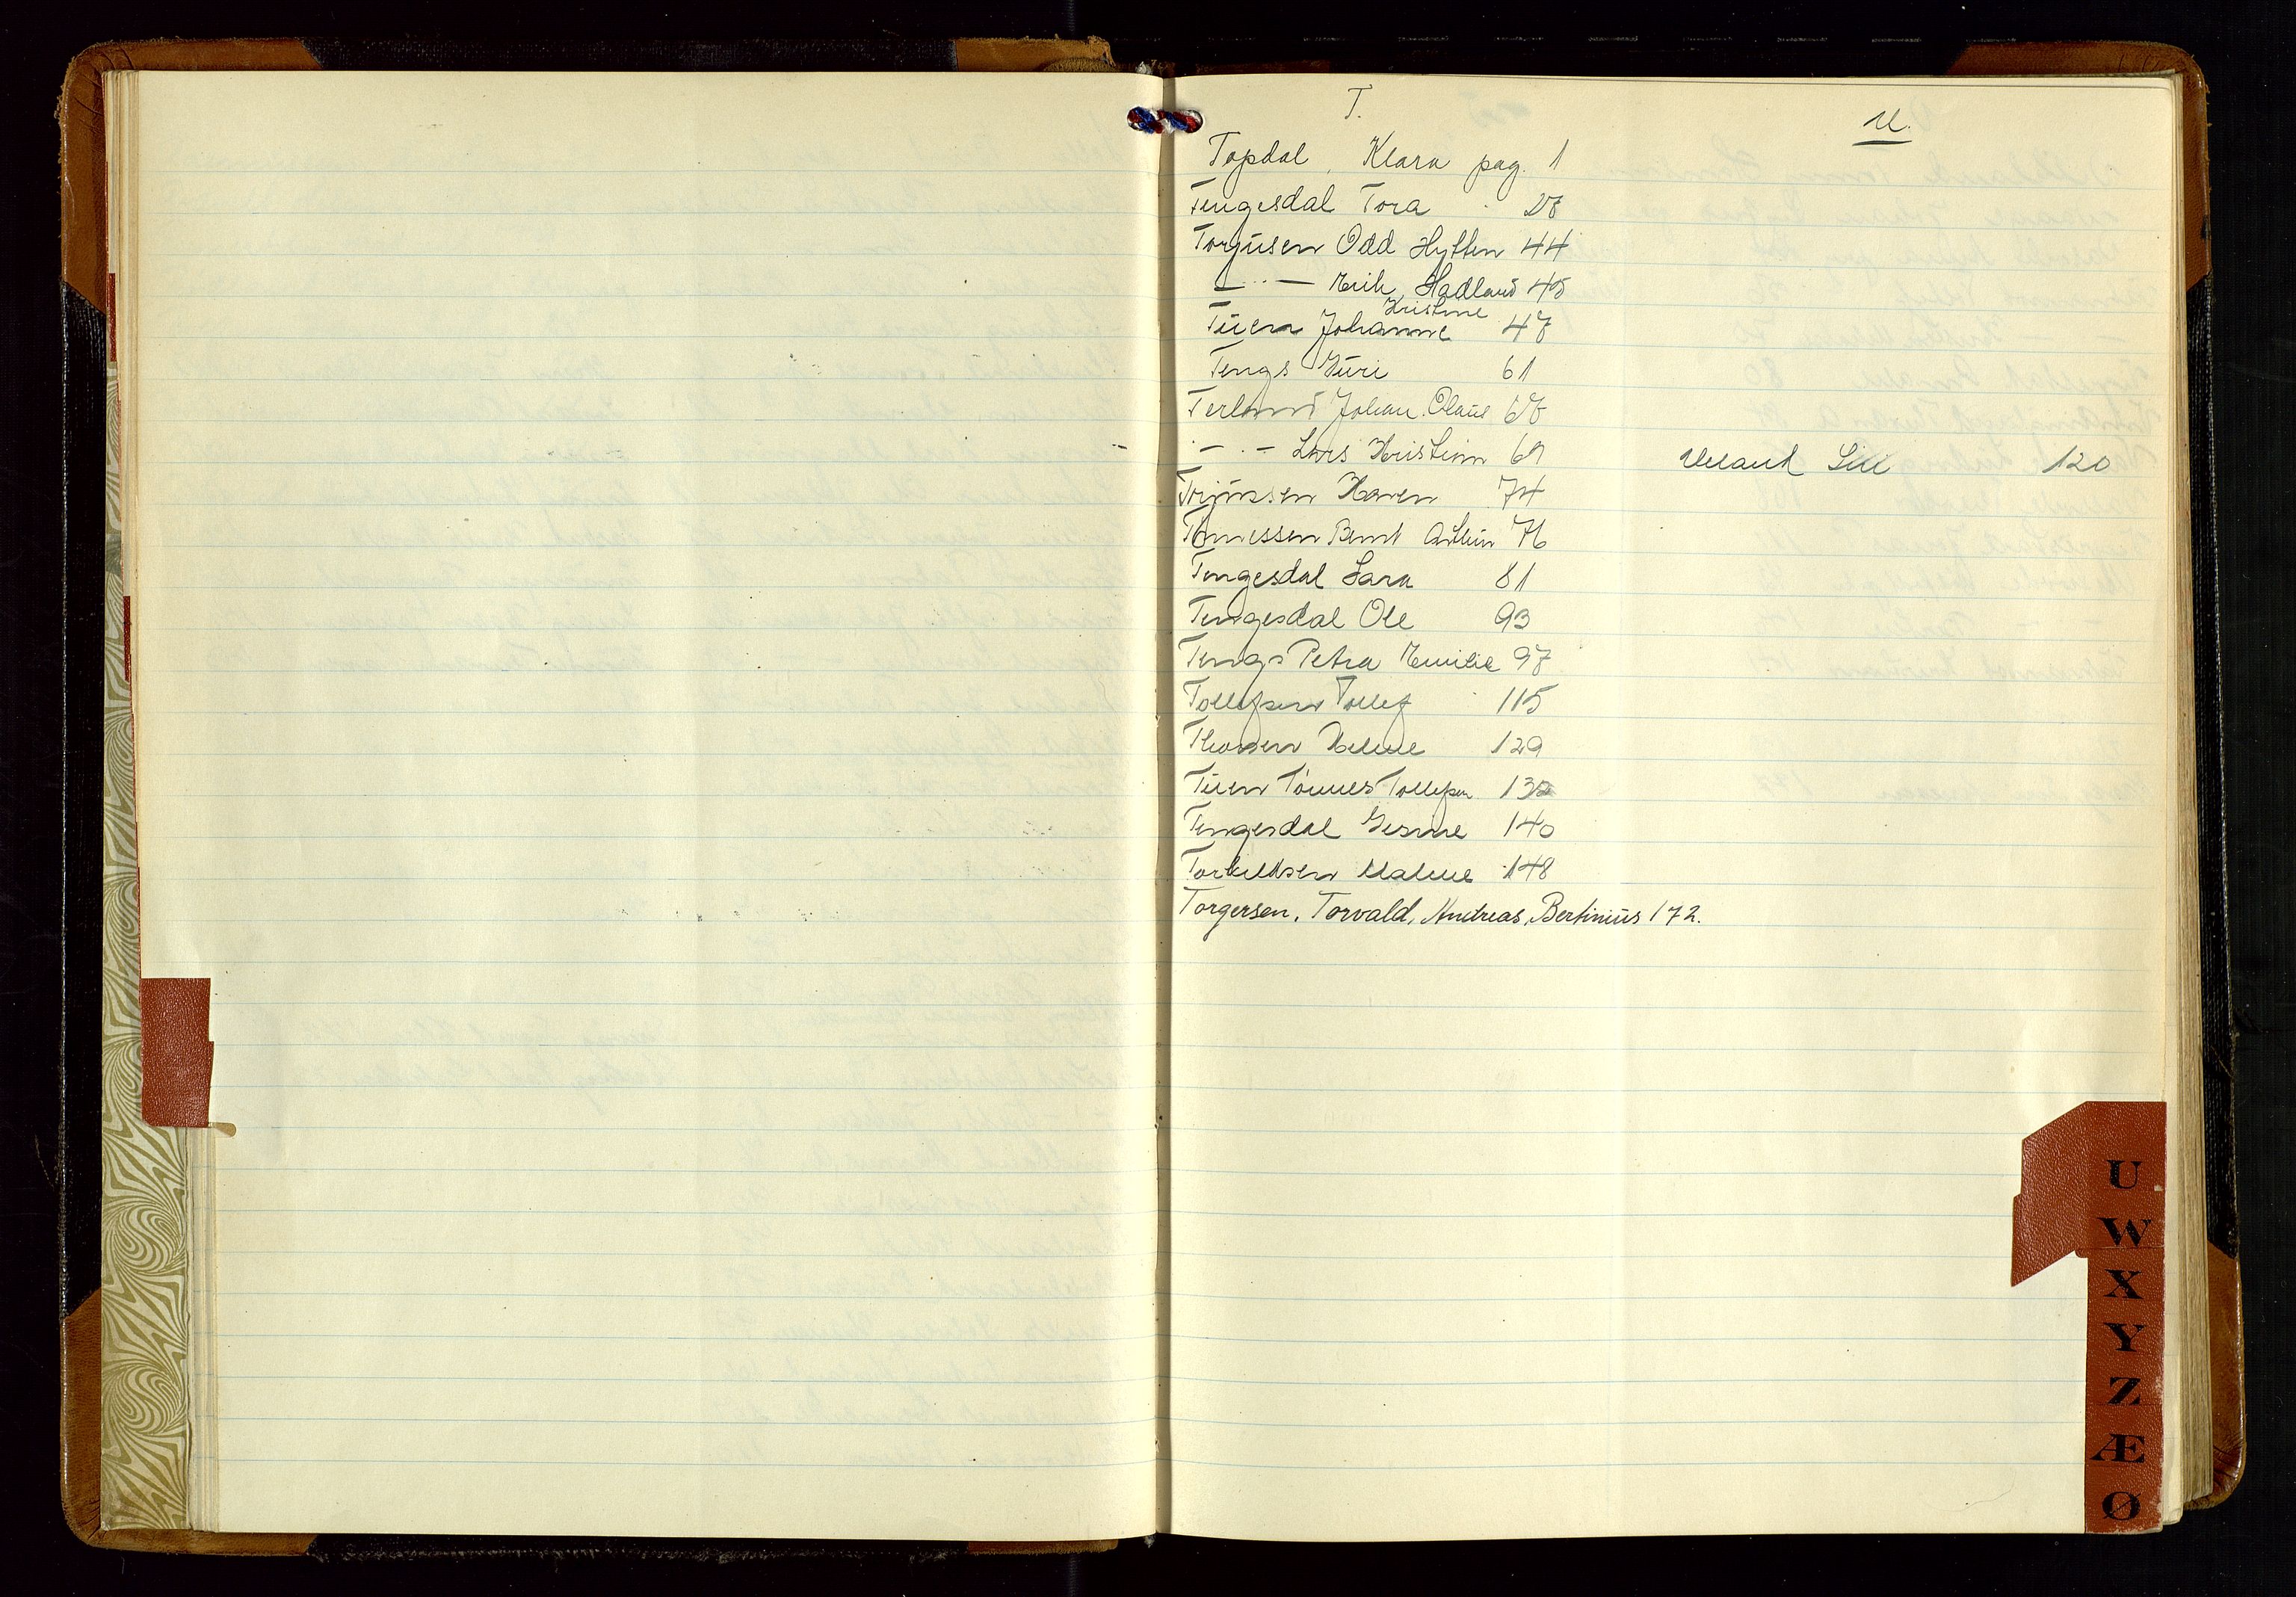 T.
Topdal, Klara pag. 1
Tengesdal Tora 27
Torjusen Odd Hytten 44
— " — Erik Hadland 45
Kristine
Tuen Johanne 47
Tengs Guri 61
Terland Johan Olaus 67
— " — Lars Kristian 69
Torjussen Karen 74
Tønnessen Bernt Arthur 76
Tengesdal Sara 81
Tengesdal Ole 93
Tengs Petra Emilie 97
Tollefsen Tollef 115
Thomsen Helene 129
Tuen Tønnes Tollefsen 132
Tengesdal Gesine 140
Torkildsen Malene 148
Torgersen, Torvald, Andreas, Bertinius 172.
U.
Ueland Lill 120
U
W
X
Y
Z
Æ
Ø